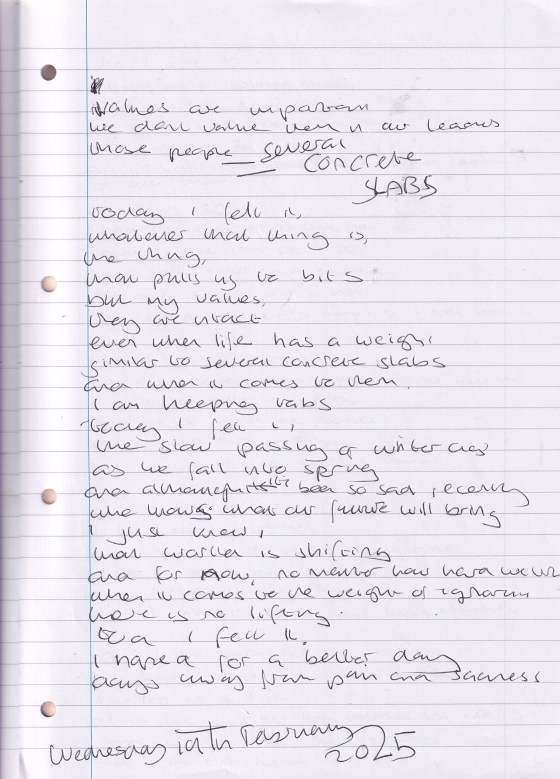 values are important
we don't value them in our leaders
those people
several
concrete
slabs
today I felt it,
whatever that thing is,
the thing,
that pulls us to bits
but my values,
they are intact
even when life has a weight
similar to several concrete slabs
and when it comes to them,
I am keeping tabs
today I felt it,
the slow passing of winter days
as we fall into spring
and although it been so sad, recently
who knows what our future will bring
I just know,
that world is shifting
and for now, no matter how hard we
when it comes to the weight of
there is no lifting.
I felt it.
I hoped for a better day
days away from pain and sadness
Wednesday 19th February
2025